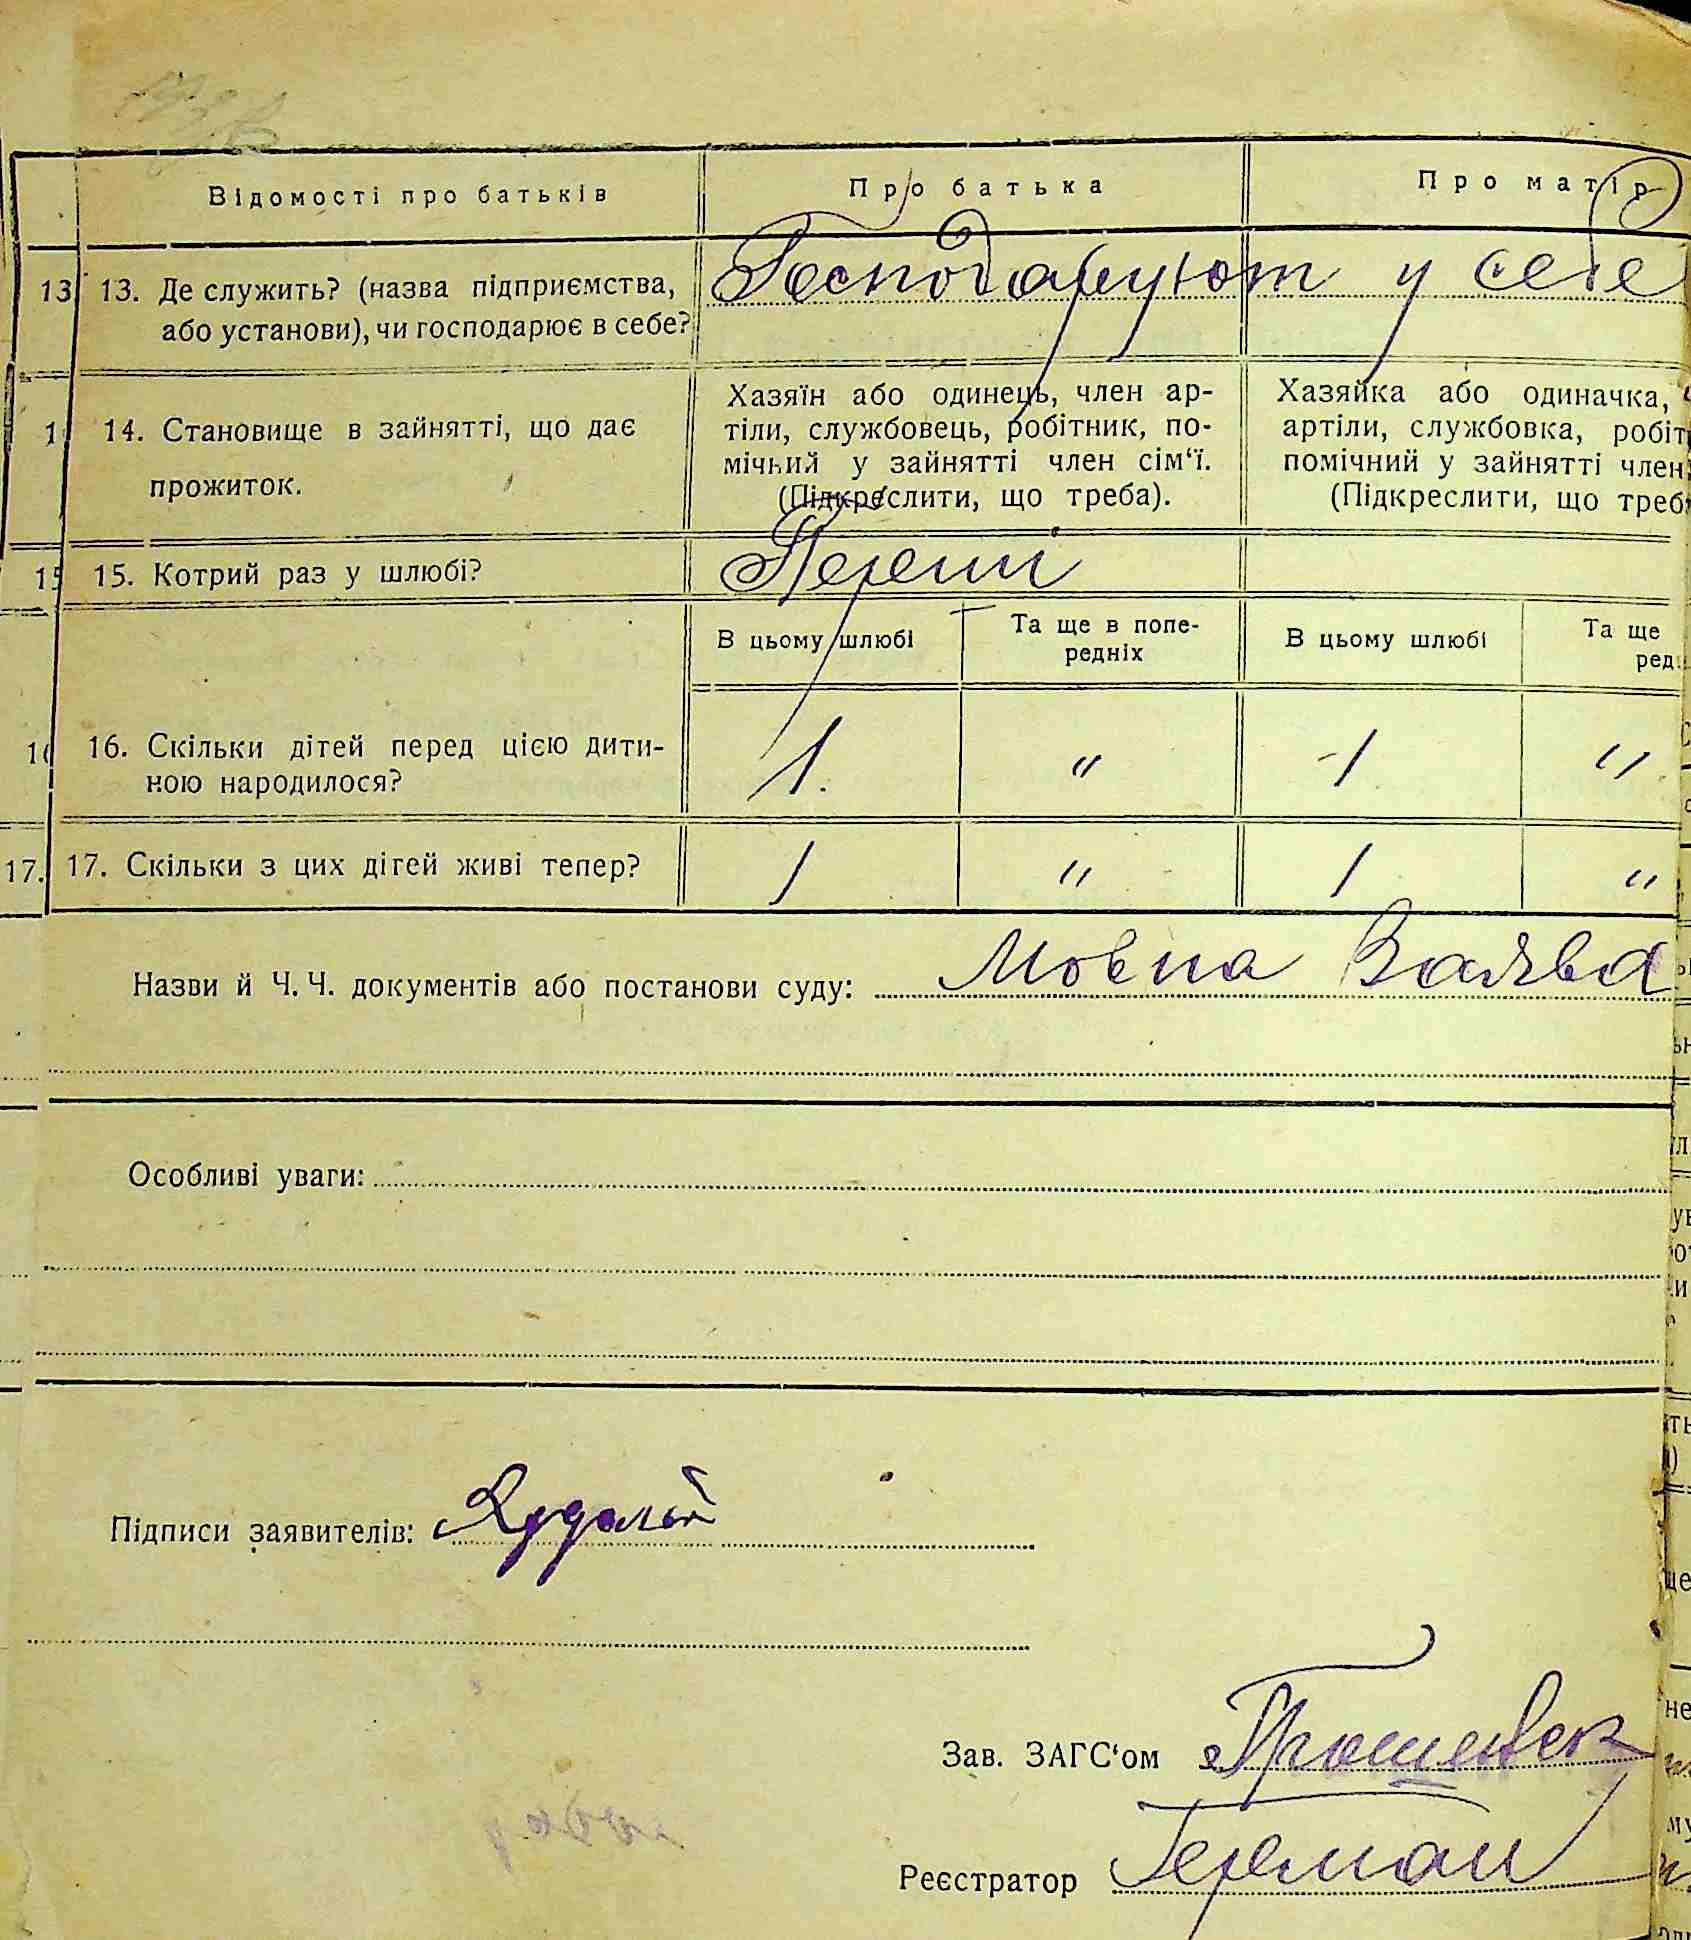 Відомості про батьків Про батька Про матір
13 13. Де служить? (назва підприємства, або установи), чи господарює в себе?
Господарують у себе
14. Становище в зайнятті, що дає прожиток.
Хазяїн або одинець, член ар-
тіли, службовець, робітник, по-
мічний у зайнятті член сім‘ї.
(Підкреслити, що треба).
Хазяйка або одиначка,
артіли, службовка, робіт
помічний у зайнятті член
(Підкреслити, що треб
15 15. Котрий раз у шлюбі? Перший
В цьому шлюбі Та ще в попе-
редніх
В цьому шлюбі Та ще
ред
16. Скільки дітей перед цією дити-
ною народилося?
1. " 1 "
17. 17. Скільки з цих дітей живі тепер? 1 " 1 "
Назви й Ч. Ч. документів або постанови суду: Мовна Заява
Особливі уваги:
Підписи заявителів:
Зав. ЗАГС‘ом
Реєстратор Герман